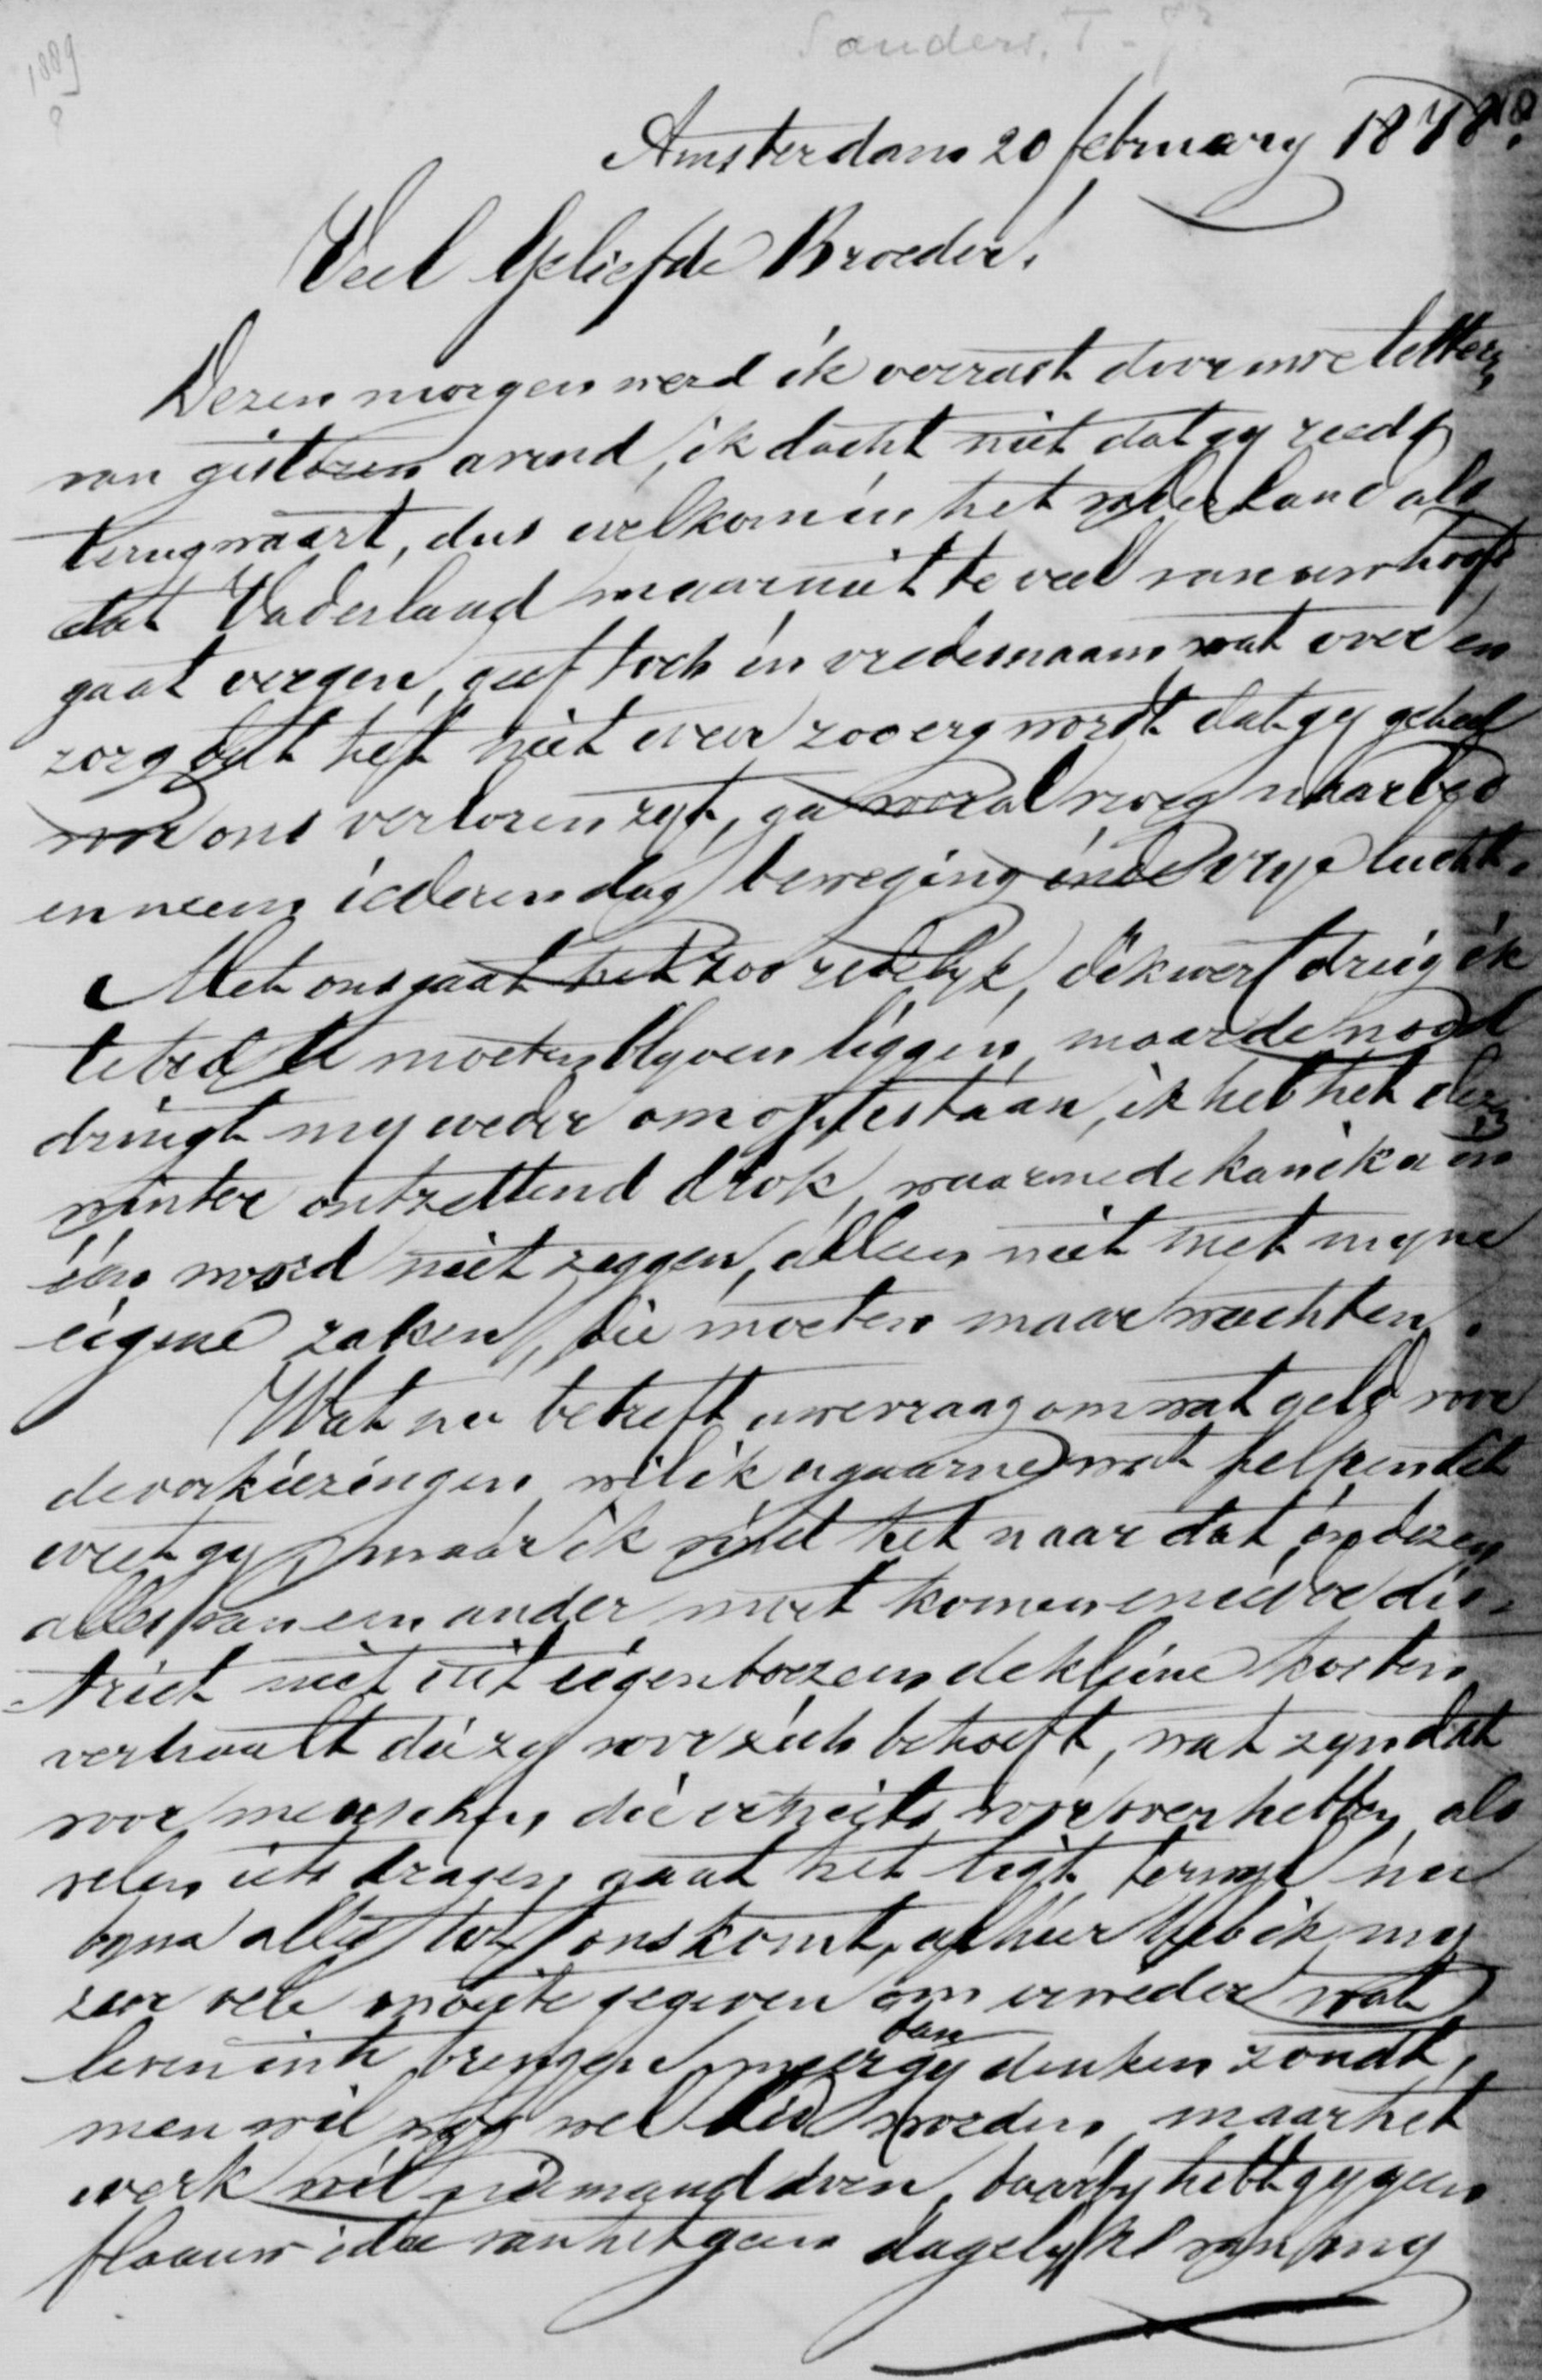 Sanders, T.
1889
?
Amsterdam 20 february 1878
Veel Geliefde Broeder!
Dezen morgen werd ik verrast door uwe letteren
van gisteren avond, ik dacht niet dat gy reeds
terug waart, dus welkom in het vaderland als
dat Vaderland maar niet te veel van uw hoofd
gaat vergen, geef toch in vredesnaam wat over en
zorg dat het niet weer zoo erg wordt dat gy geheel
voor ons verloren zyt, ga vooral vroeg naar bed
en neem iederen dag beweging in de vrye lucht.
Met ons gaat het zoo redelyk, dikwerf dreig ik
te bed te moeten blyven liggen, maar de nood
dringt my weder om op te staan, ik heb het dezen
winter ontzettend drok, waarmede kan ik u in
één woord niet zeggen, alleen niet met myne
eigene zaken, die moeten maar wachten.
Wat nu betreft uwe vraag om wat geld voor
de verkiezingen, wil ik u gaarne wat helpen dit
weet gy, maar ik vind het naar dat in dezen
alles van een ander moet komen en ieder dis-
trict niet uit eigen boezem de kleine kosten
verhaalt die zy voor zich behoeft, wat zyn dat
voor menschen die er niets voor over hebben, als
velen iets dragen gaat het ligt terwyl nu
byna alles tot ons komt, hier heb ik my
zeer vele moeite gegeven om er weder wat
leven in te brengen, meer dan gy denken zoudt,
men wil nog wel lid worden, maar het
werk wil niemand doen, daarby hebt gy geen
flaauw idee van hetgeen dagelyks van my